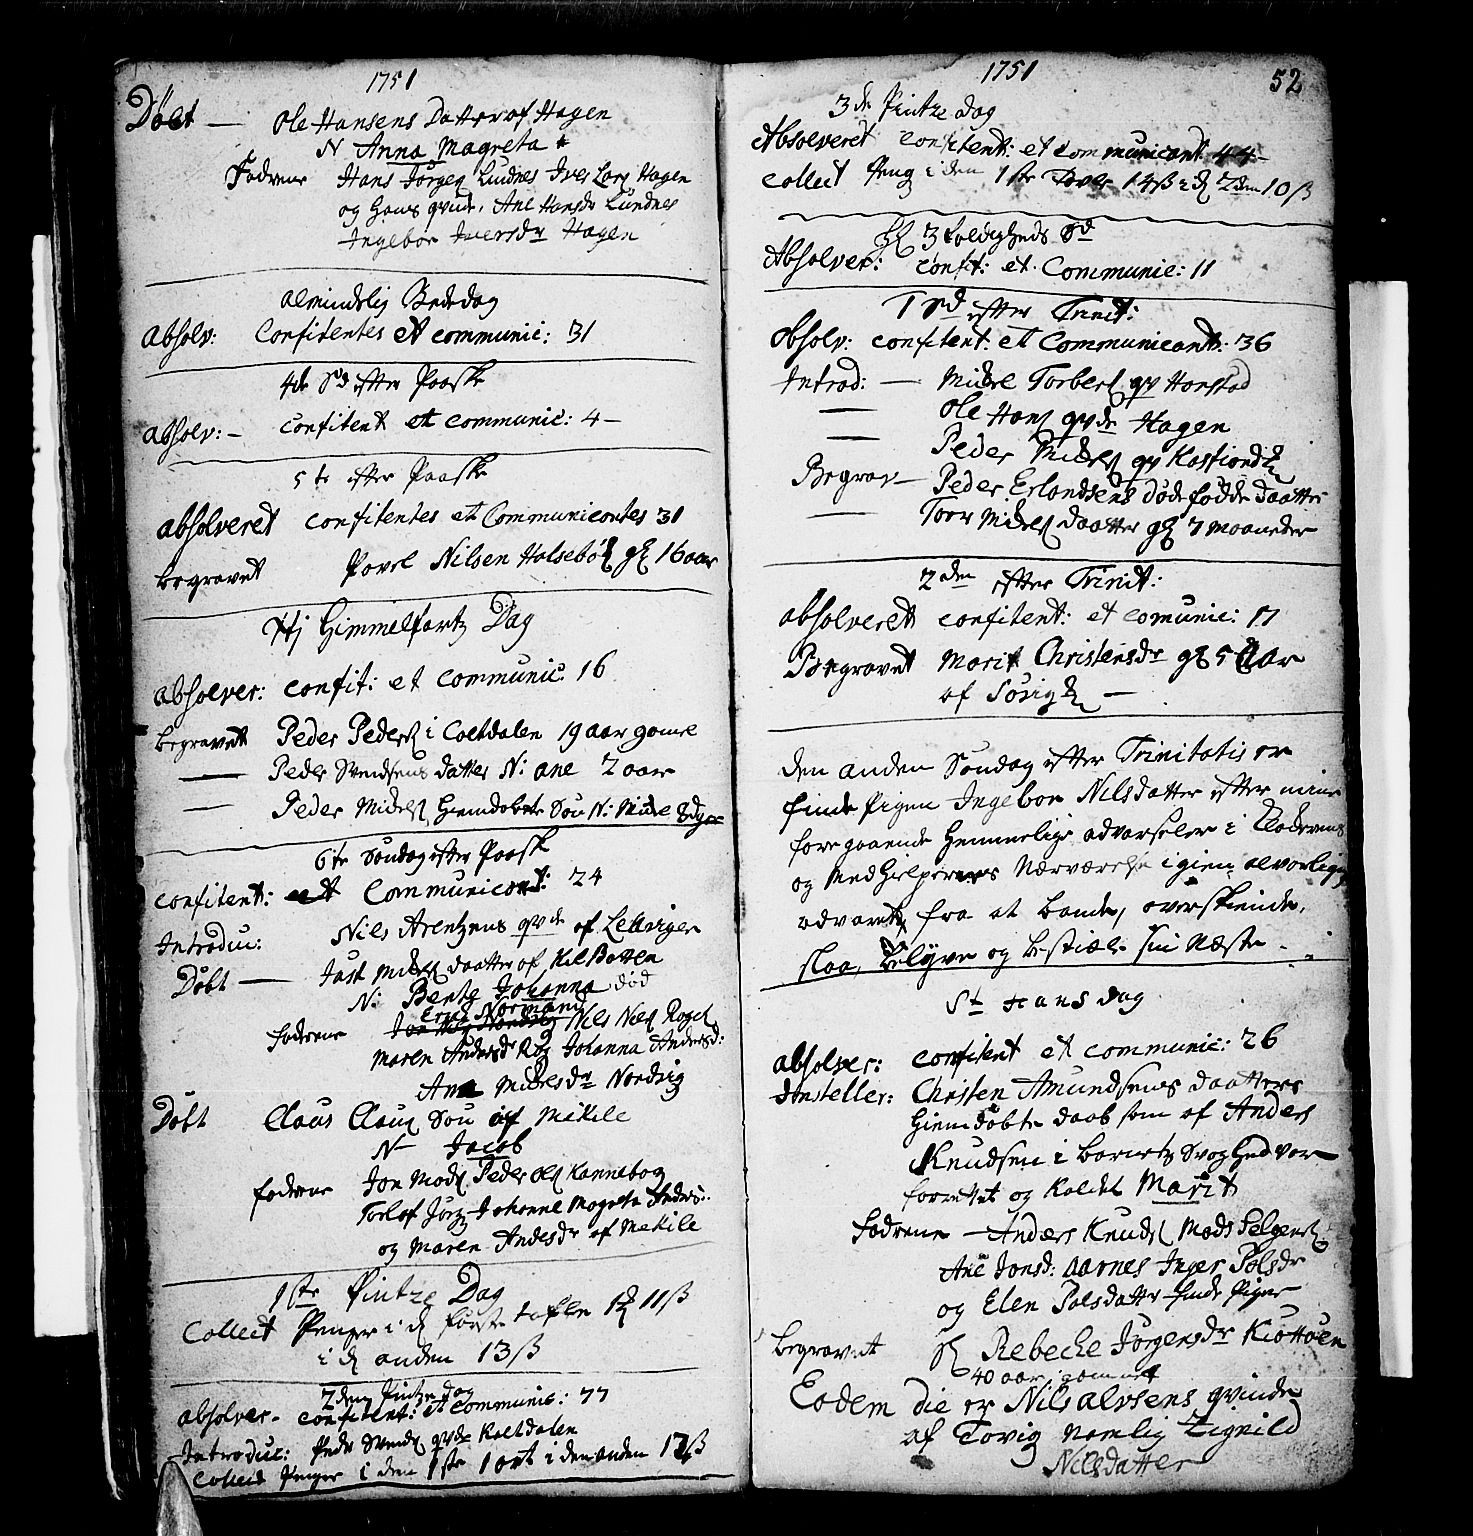 1751
Døbt — Ole Hansens Datter af Hagen
N Anna Magreta
Fadrene Hans Jørgens Lundnes Iver Lars Hagen
og Hans qvinde, Ane Hansdr Lundnes
Ingebor Iversdr Hagen
Almindelig Bededag
Absolv: Confitentes et communic: 31
4de Sd efter Paaske
absolv: — confitent et communic: 4 —
5te efter Paaske
absolveret confitentes et Communicantes 31
begravet Povel Nilsen Halsebø gl 16 aar
Himmelfartz Dag
absolver: confit: et communic: 16
begravet Peder Peders i Coltdalen 19 aar gamel
— Peder Svendsens datter N: ane 2 aar
— Peder Mickels Hiemdøbte Søn N: Mickel
6te Søndag efter Paaske
confitent: et Communicant: 24
Introduc: Nils Arentzens qvde af Lekvigen
Døbt — Just Mickels daatter af Kilbotten
N: Bentz Johanna død
Erich Normand
fadrene Nils Niels
Maren Andersdr Johanna Andersd:
Ane Mickelsdr Nordvig
Døbt Claus Claus Søn af Mekile
N — Jacob
fadrene Jon Mads Peder Ols Kannebog
Torlof Jørg Johanne Magreta Anders:
og Maren Andersdr af Mekile
1ste Pintze Dag
Collect Penger i d første tafle 1 11 ß
i d anden 13 ß
2den Pintzedag
absolver. confitent: et communic: 77
Introduc: Peder Svends qvde Koltdalen
Collect Penger i den 1ste 1 ort i den anden 12 ß
1751 52
3de Pintze dag
Absolveret confitent: et communicant 44 —
Collect Peng i den 1ste Tavle 14 ß i d 2den 10 ß
3foldigheds Sd
Absolver: confit: et Communic: 11
1 Sd efter Trinit:
Absolv: confitent: et Communicants: 36
Introd: — Mickel Torbers qv Harstad
— Ole Hans qvde Hagen
— Peder Mickels qv
Begrav — Peder Erlandsens dødfødde daatter
— Toer Mickels daatter gl 7 maaneder
2den efter Trinit:
absolveret confitent: et comunic: 17
Begravet Marit Christensdr gl 50 aar
af Sørvig —
den anden Søndag efter Trinitatis er
finde Pigen Ingebor Nilsdatter efter mine
foregaaende Hemmelige advarseler i
og Medhielpernes Nærværelse igien alvorlig
advaret fra at bande, overskiende,
slaa, belyve og bestiæle sin Næste.
St Hans dag
absolver: confitent et communic: 26
Christen Amundsens daatters
Hiemdøbte daab som af Anders
Knudsen i barnets Svaghed var
forrettet og kaldet Marit
Fadrene — Anders Knuds Mads
Ane Jonsd: Aarnes Inger Polsdr
og Elen Polsdatter finde Piger
begravet Rebecke Jørgensdr Kiøttøen
40 aar gammel
Eodem die er Nils alvsens qvinde
af Tovig namlig Zignild
Nilsdatter